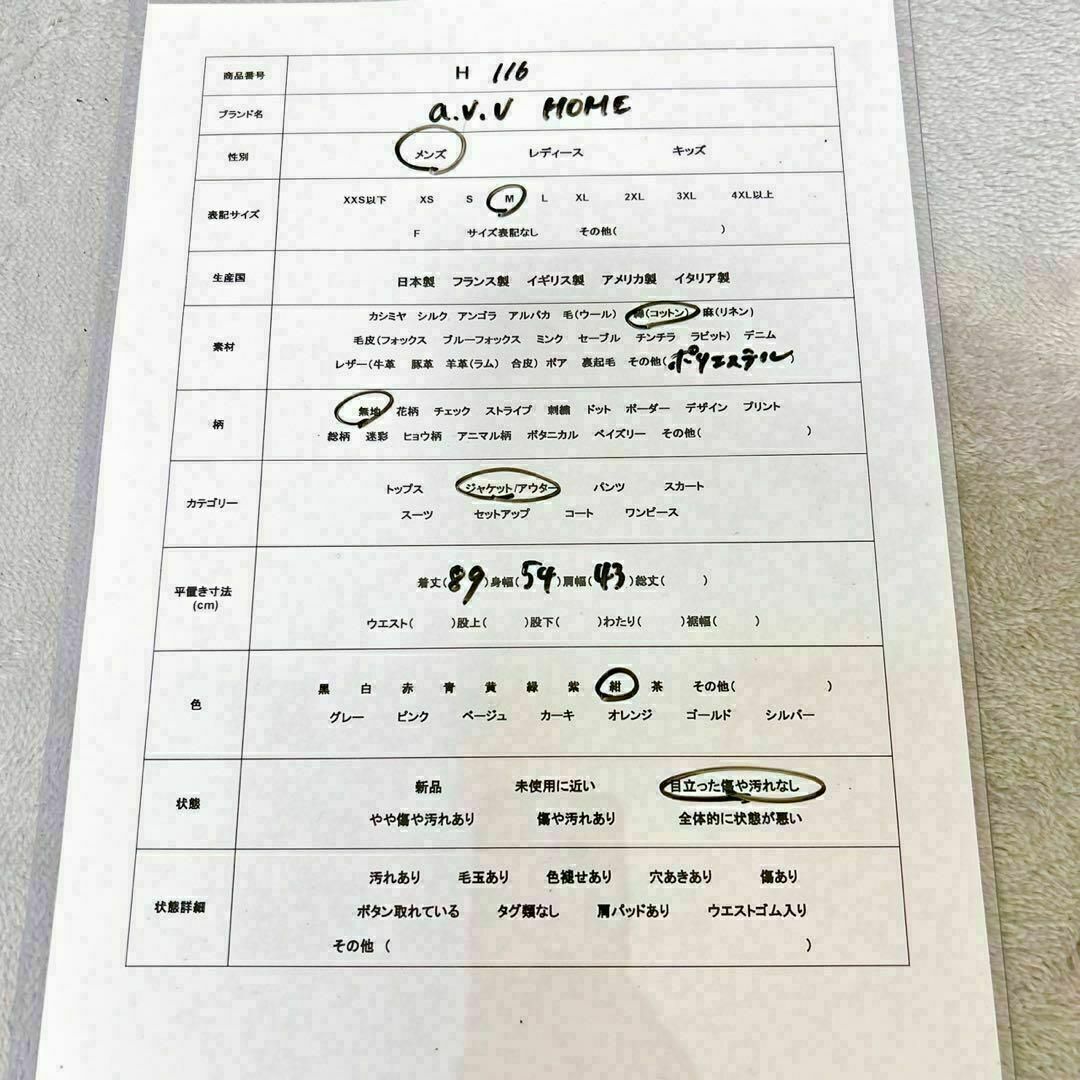 商品番号 H 116
ブランド名 a.v.v HOME
性別 メンズ レディース キッズ
表記サイズ XXS以下 XS S M L XL 2XL 3XL 4XL以上
F サイズ表記なし その他( )
生産国 日本製 フランス製 イギリス製 アメリカ製 イタリア製
素材 カシミヤ シルク アンゴラ アルパカ 毛(ウール) 綿(コットン) 麻(リネン)
毛皮(フォックス ブルーフォックス ミンク セーブル チンチラ ラビット) デニム
レザー(牛革 豚革 羊革(ラム) 合皮) ボア 裏起毛 その他(ポリエステル)
柄 無地 花柄 チェック ストライプ 刺繍 ドット ボーダー デザイン プリント
総柄 迷彩 ヒョウ柄 アニマル柄 ボタニカル ペイズリー その他( )
カテゴリー トップス ジャケット/アウター パンツ スカート
スーツ セットアップ コート ワンピース
平置き寸法 (cm) 着丈(89)身幅(54)肩幅(43)総丈( )
ウエスト( )股上( )股下( )わたり( )裾幅( )
色 黒 白 赤 青 黄 緑 紫 紺 茶 その他( )
グレー ピンク ベージュ カーキ オレンジ ゴールド シルバー
状態 新品 未使用に近い 目立った傷や汚れなし
やや傷や汚れあり 傷や汚れあり 全体的に状態が悪い
状態詳細 汚れあり 毛玉あり 色褪せあり 穴あきあり 傷あり
ボタン取れている タグ類なし 肩パッドあり ウエストゴム入り
その他 ( )